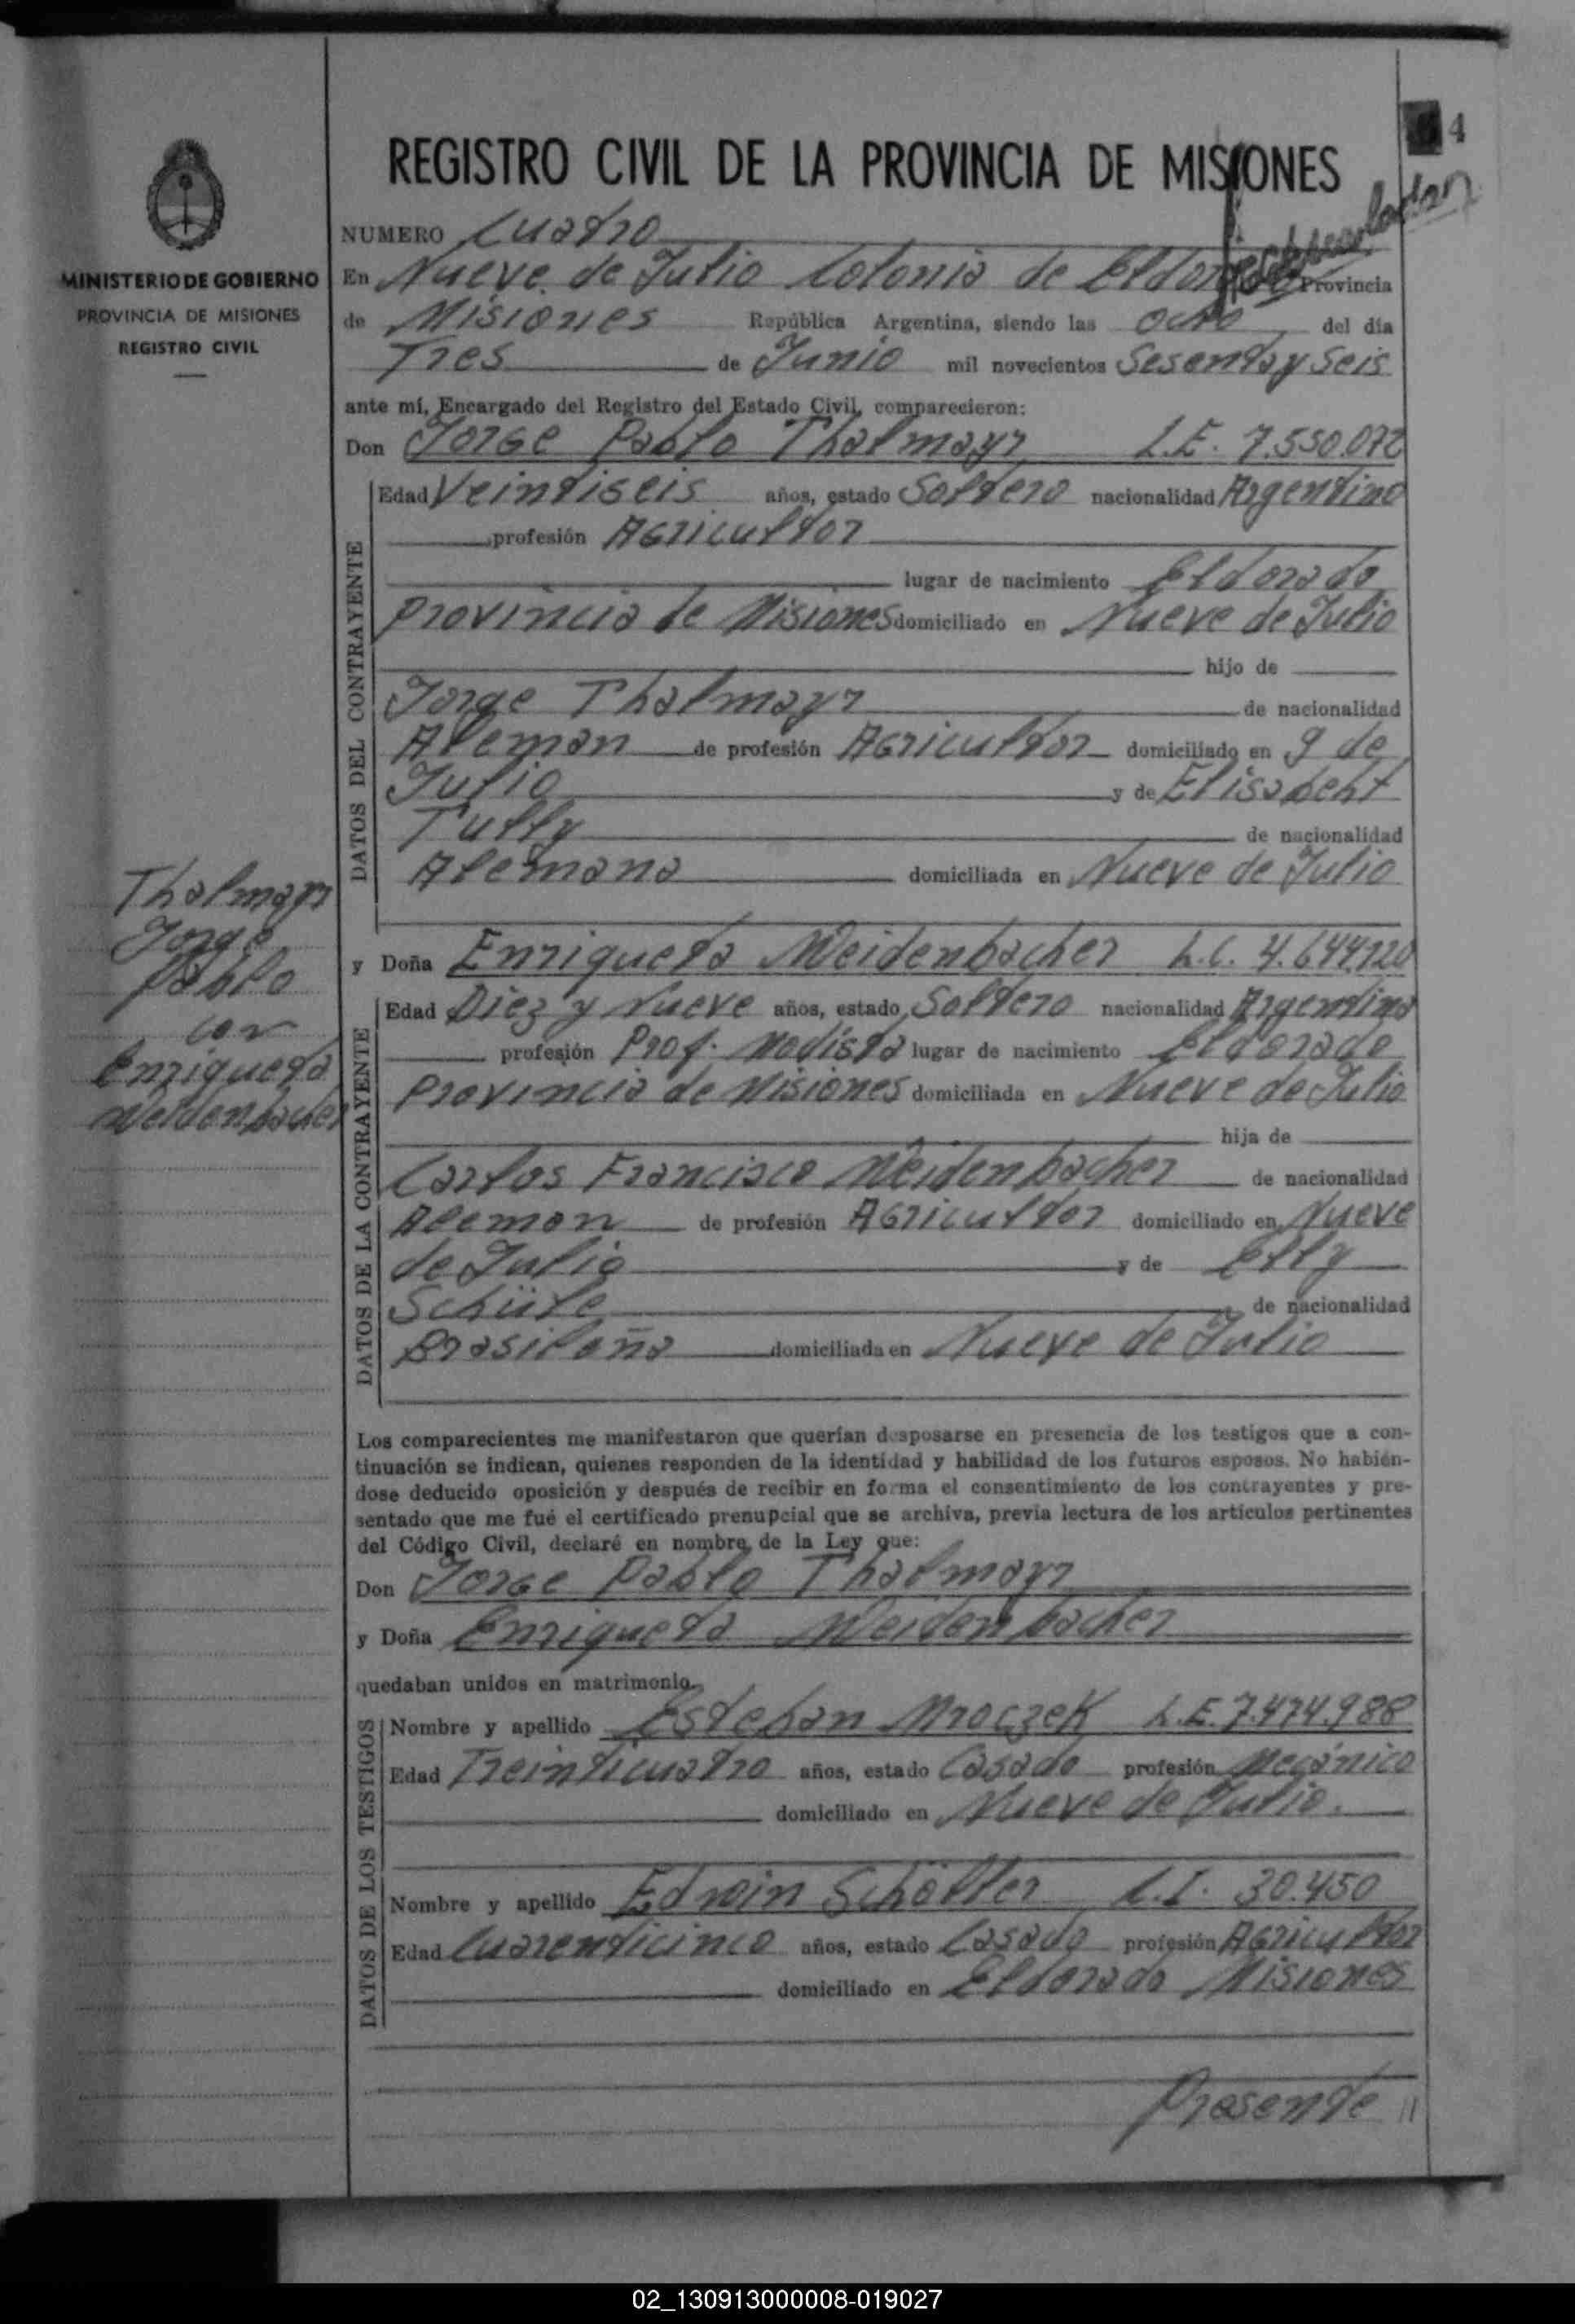 4
REGISTRO CIVIL DE LA PROVINCIA DE MISIONES
MINISTERIO DE GOBIERNO
PROVINCIA DE MISIONES
REGISTRO CIVIL
NUMERO Cuatro
En Nueve de Julio Colonia de Eldorado Provincia
de Misiones República Argentina, siendo las ocho del día
Tres de Junio mil novecientos Sesenta y Seis
ante mí, Encargado del Registro del Estado Civil, comparecieron:
Don Jorge Pablo Thalmayr L.E. 7.550.072
DATOS DEL CONTRAYENTE
Edad Veintiseis años, estado Soltero nacionalidad Argentino
profesión Agricultor
lugar de nacimiento Eldorado
Provincia de Misiones domiciliado en Nueve de Julio
hijo de
Jorge Thalmayr de nacionalidad
Aleman de profesión Agricultor domiciliado en 9 de
Julio y de Elisabeht
Tully de nacionalidad
Alemana domiciliada en Nueve de Julio
Thalmayr
Jorge
Pablo
con
Enriqueta
Weidenbacher
y Doña Enriqueta Weidenbacher L.C. 4.644.120
DATOS DE LA CONTRAYENTE
Edad Diez y Nueve años, estado Soltera nacionalidad Argentina
profesión Prof. Modista lugar de nacimiento Eldorado
Provincia de Misiones domiciliada en Nueve de Julio
hija de
Carlos Francisco Weidenbacher de nacionalidad
Aleman de profesión Agricultor domiciliado en Nueve
de Julio y de Elly
Schüle de nacionalidad
Brasileña domiciliada en Nueve de Julio
Los comparecientes me manifestaron que querían desposarse en presencia de los testigos que a con-
tinuación se indican, quienes responden de la identidad y habilidad de los futuros esposos. No habién-
dose deducido oposición y después de recibir en forma el consentimiento de los contrayentes y pre-
sentado que me fué el certificado prenupcial que se archiva, previa lectura de los artículos pertinentes
del Código Civil, declaré en nombre de la Ley que:
Don Jorge Pablo Thalmayr
y Doña Enriqueta Weidenbacher
quedaban unidos en matrimonio.
DATOS DE LOS TESTIGOS
Nombre y apellido Esteban Mroczek L.E. 7.474.988
Edad Treinticuatro años, estado Casado profesión Mecánico
domiciliado en Nueve de Julio.
Nombre y apellido Edwin Schöller C.I. 30.450
Edad Cuarenticinco años, estado Casado profesión Agricultor
domiciliado en Eldorado Misiones
Presente //
02_130913000008-019027